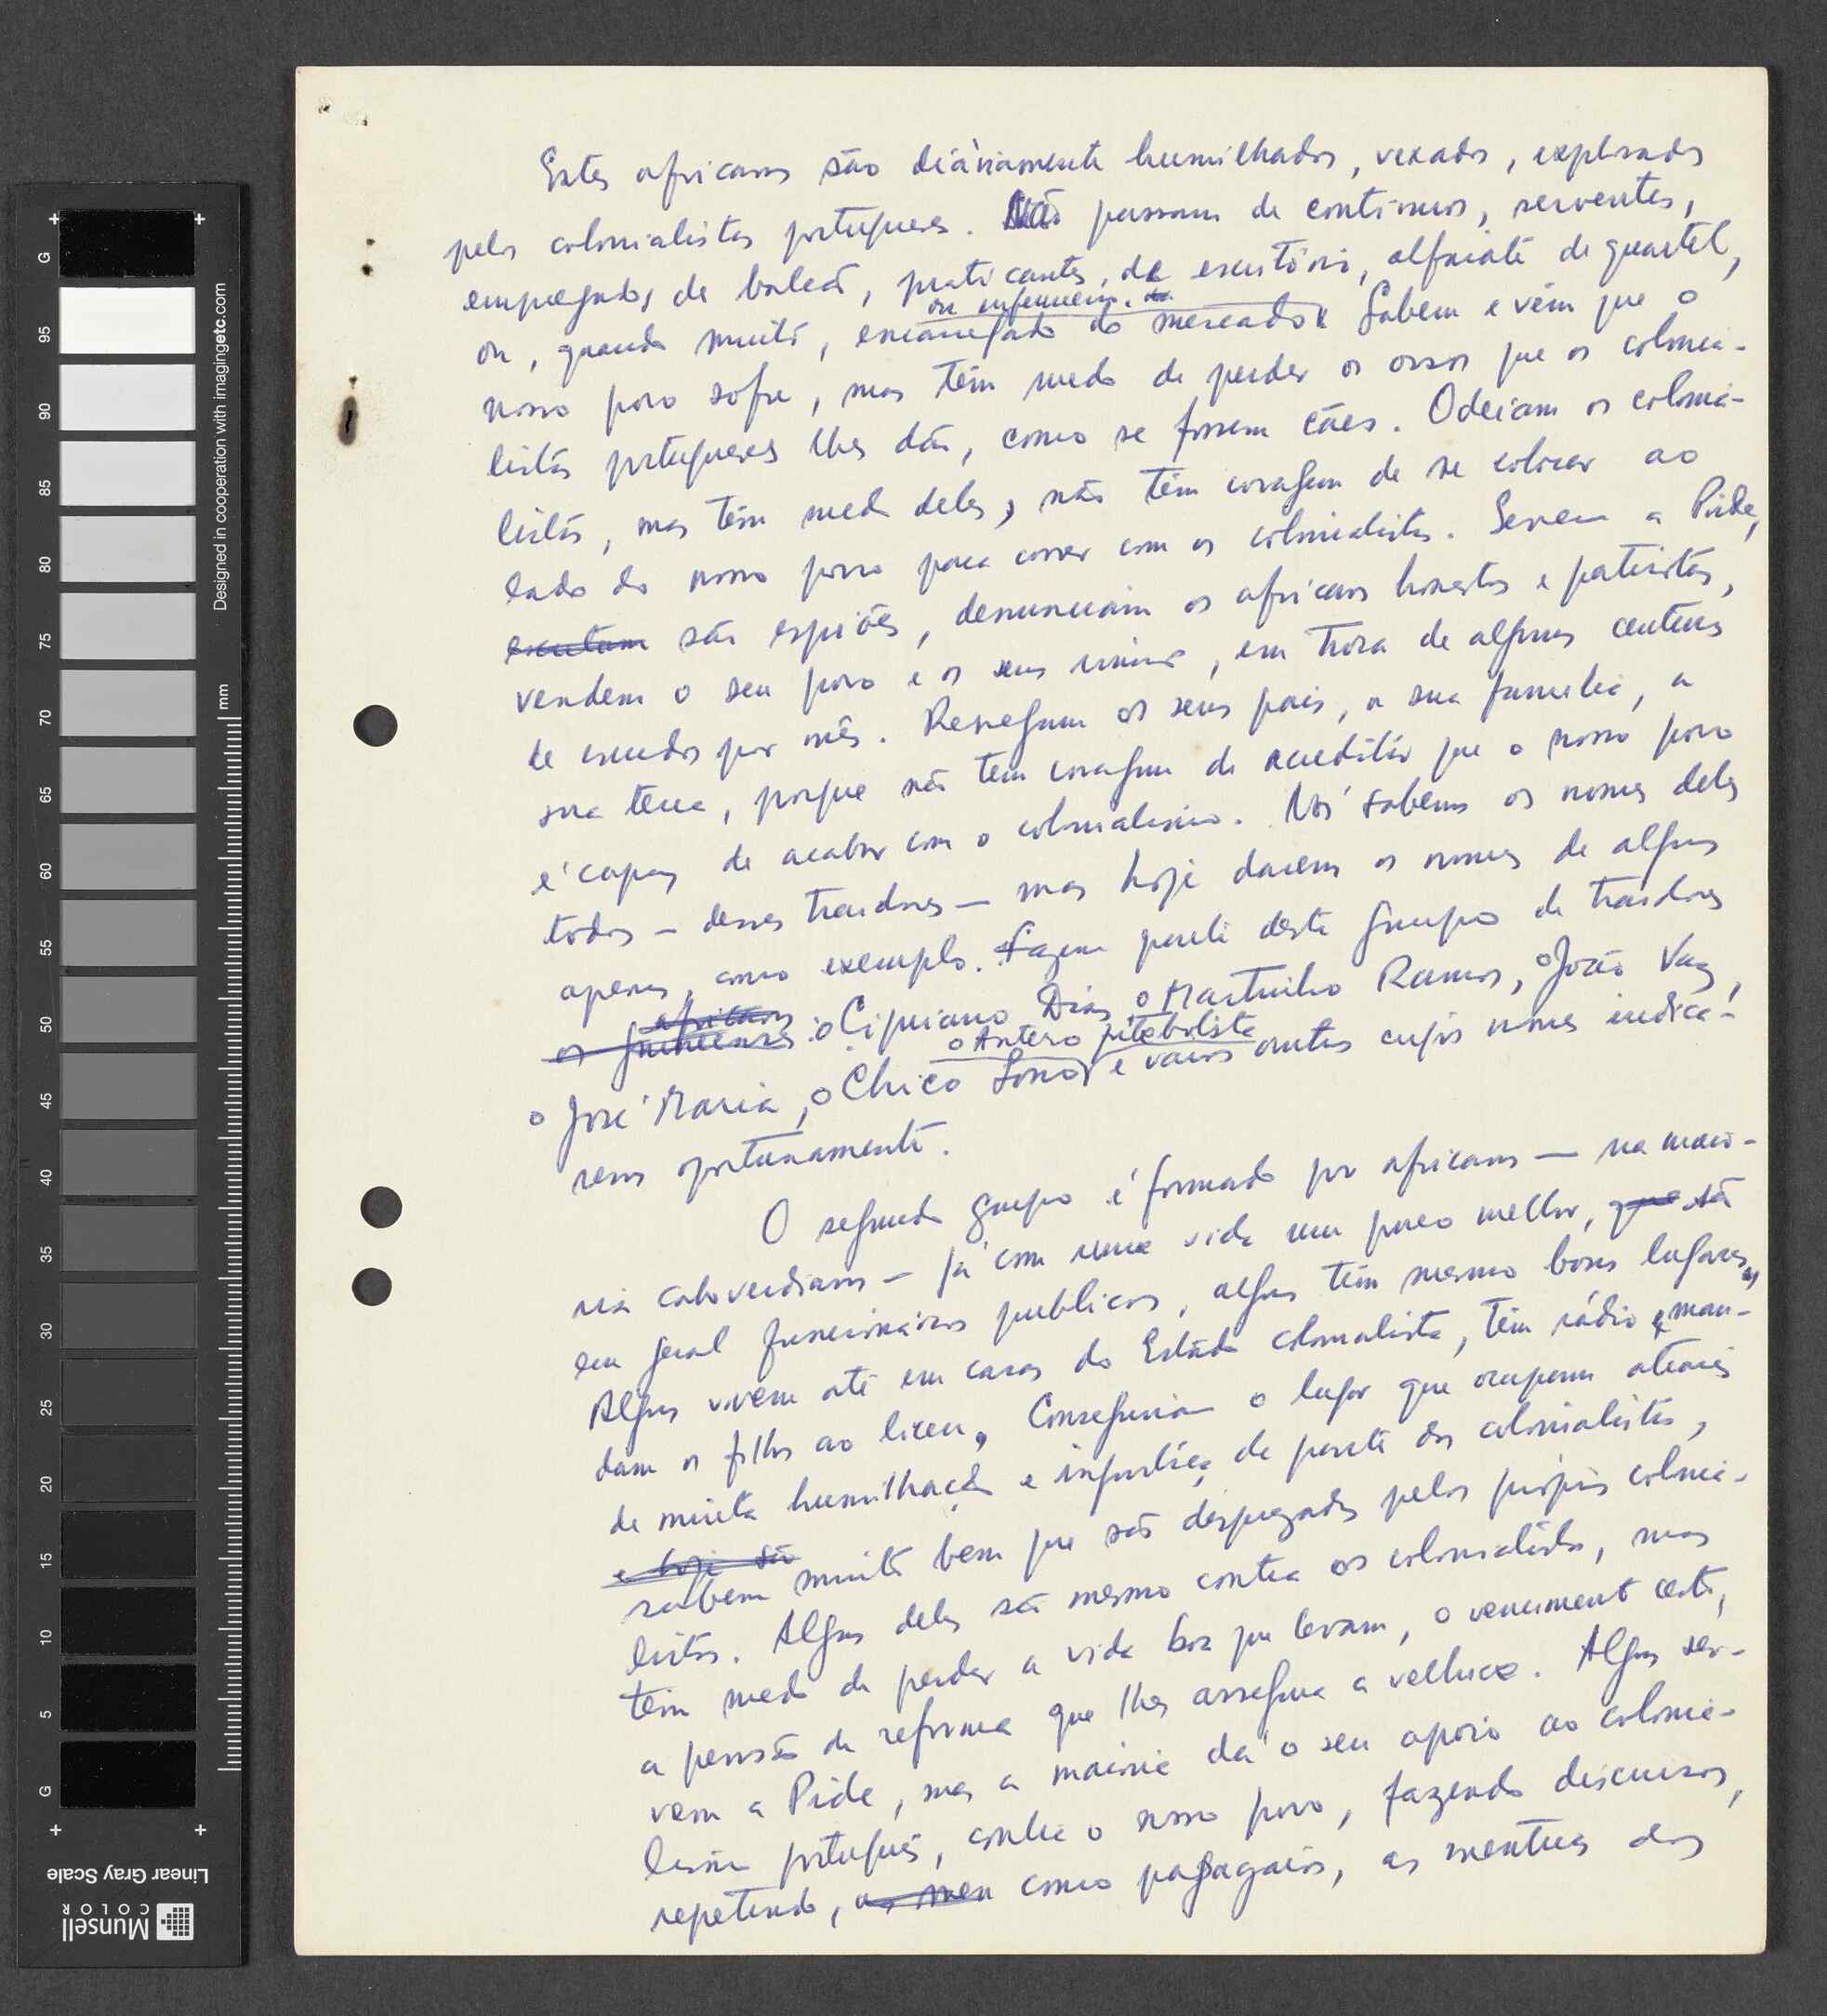 Estes africanos são diàriamente humilhados, vexados, explorados
pelos colonialistas portugueses. Não passam de contínuos, serventes,
empregados de balcão, praticantes, de escritório, alfaiate de quartel,
ou enfermeiro. de
ou, quando muito, encarregado do mercado. Sabem e vêm que o
nosso povo sofre, mas têm medo de perder os ossos que os colonia-
listas portugueses lhes dão, como se fossem cães. Odeiam os colonia-
listas, mas têm medo deles, não têm coragem de se colocar ao
lado do nosso povo para correr com os colonialistas. Servem a Pide,
escutam são espiões, denunciam os africanos honestos e patriotas,
vendem o seu povo e os seus irmãos, em troca de algumas centenas
de escudos por mês. Renegam os seus pais, a sua família, a
sua terra, porque não tem coragem de acreditar que o nosso povo
é capaz de acabar com o colonialismo. Nós sabemos os nomes deles
todos — desses traidores — mas hoje daremos os nomes de alguns
apenas, como exemplo. Fazem parte deste grupo de traidores
africanos
os guineenses: o Cipriano Dias, o Martinho Ramos, o João Vaz,
o Antero futebolista
o José Maria, o Chico Sono e vários outros cujos nomes indica-
remos oportunamente.
O segundo grupo é formado por africanos — na maio-
ria caboverdianos — já com uma vida um pouco melhor, que são
em geral funcionários publicos, alguns têm mesmo bons lugares,
Alguns vivem até em casas do Estado colonialista, têm rádio e man-
dam os filhos ao liceu, Conseguiram o lugar que ocupam através
de muita humilhação e injustiça de parte dos colonialistas,
e hoje são
sabem muito bem que são desprezados pelos próprios colonia-
listas. Alguns deles são mesmo contra os colonialistas, mas
têm medo de perder a vida boa que levam, o vencimento certo,
a pensão de reforma que lhes assegura a velhice. Alguns ser-
vem a Pide, mas a maioria dá o seu apoio ao colonia-
lismo português, contra o nosso povo, fazendo discursos,
repetindo, as men como papagaios, as mentiras dos
Designed in cooperation with imagingetc.com
mm
G
95
90
85
80
75
70
65
60
55
50
45
40
35
30
25
20
15
10
5
G
Linear Gray Scale
Munsell
COLOR